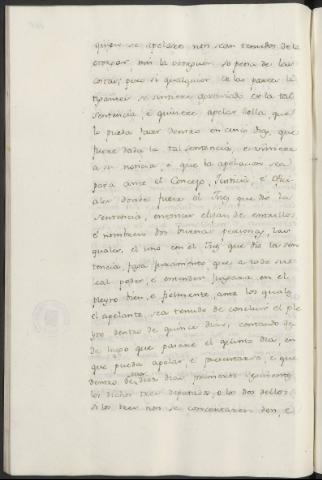 quien se apelare non sean tenudos de la
otorgar, nin la otorguen so pena de las
costas; pero si qualquier de las partes le
tigantes se sintiere agraviado de la tal
sentencia, e quisiere apelar della, que
lo pueda facer dentro en cinco dias, que
fuere dada la tal sentencia, e viniere
a su noticia, e que la apelacion sea
para ante el Concejo, Justicia, e Ofici
ales donde fuere el Juez que dio la
sentencia, e nombren dos buenas personas, las
quales, el uno con el Juez que dio la sen
tencia, faga juramento, que a todo su
eal poder, e entender juzgara en el
pleyto bien, e fielmente, ante los quales
el apelante sea tenudo de concluir el ple
yto dentro de quince dias, contados de
de luego que pasare el quinto dia, en
que pueda apelar e presentarse e que
dentro de diez dias primeros siguientes
los dichos tres deputados, o los dos dellos
si los tres non se concertaren den, e